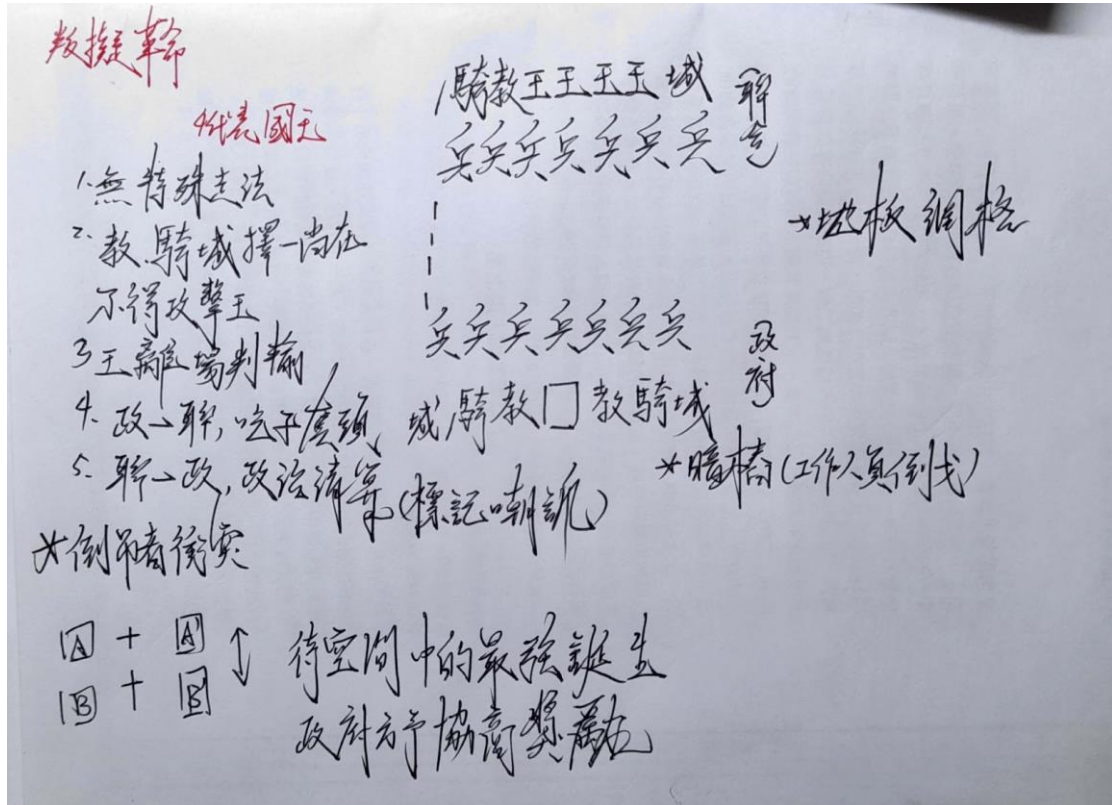 叛擬革命
4代表國王
1.無特殊走法
2.教.騎.城擇一尚在
不得攻擊王
3.王離場判輸
4.政→聯,吃子
5.聯→政,政 清算(標記嘲諷)
*倒吊者衝突
騎教王王王王城
兵兵兵兵兵兵兵
聯合
*地板網格
兵兵兵兵兵兵兵
城騎教□教騎城
政府
*暗樁(工作人員倒戈)
A + A'
B + B'
待空間中的最強誕生
政府方予協商獎勵